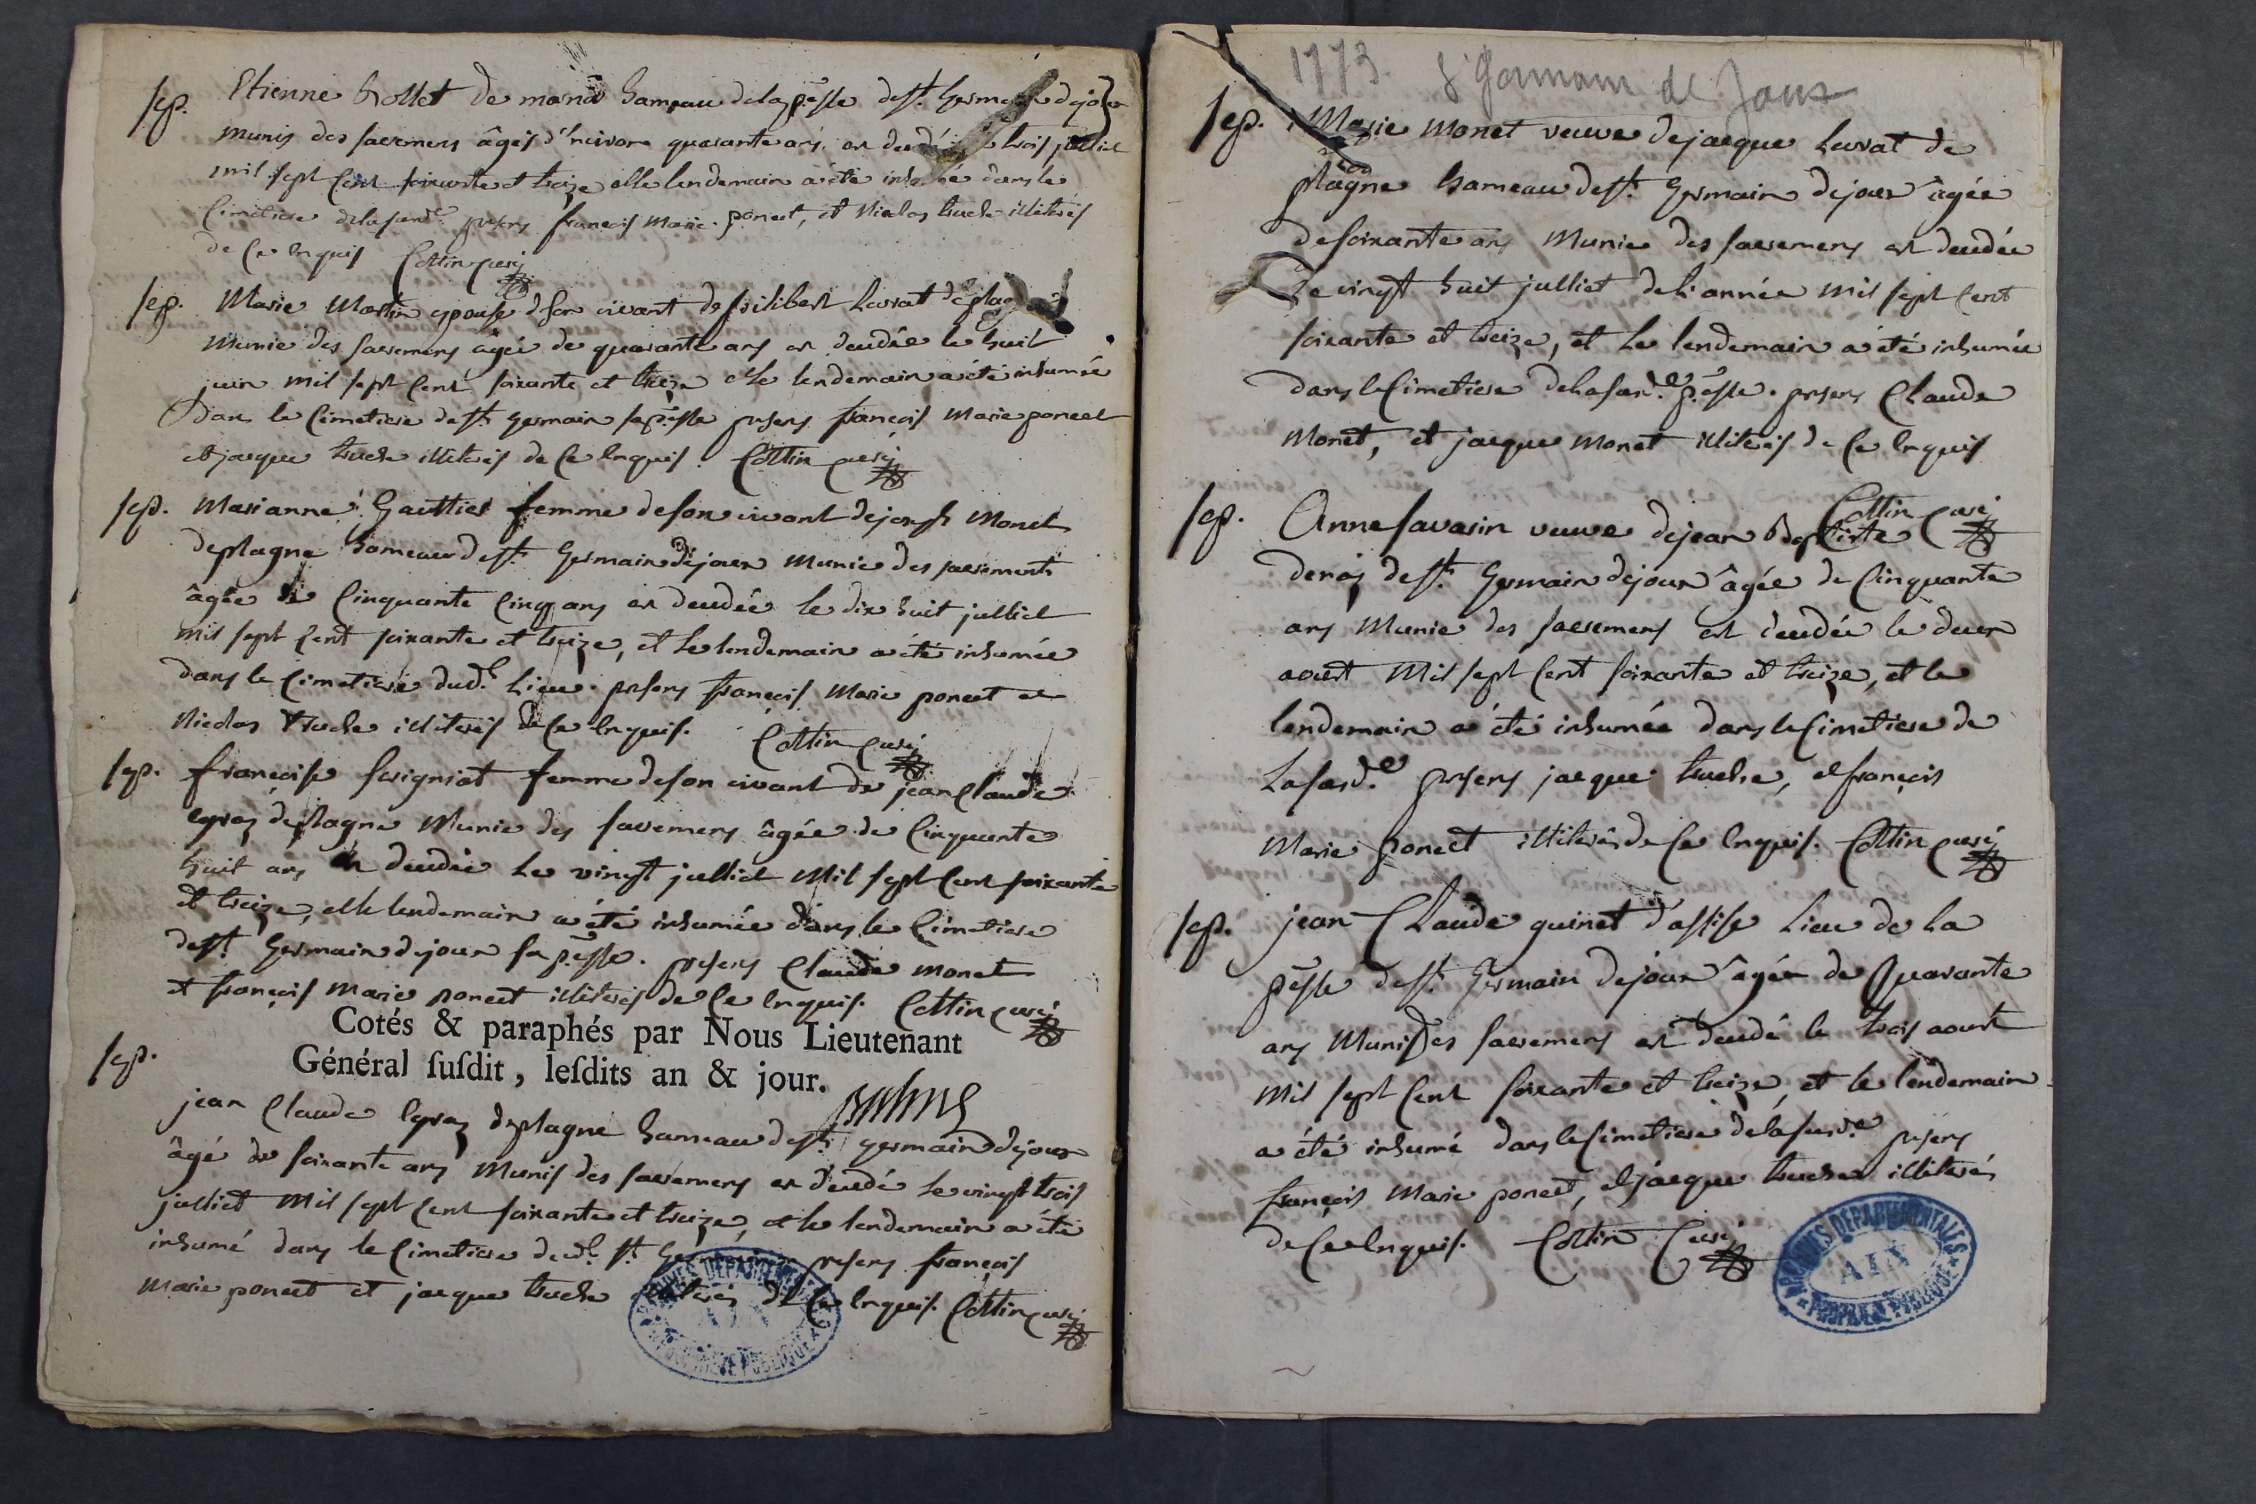 sep. Etienne Rollet de hameau de la p̃esse de st. Germain de joux
munis des sacremens âgés d'environ quarante ans est décédé le trois juilliet
mil sept cent soixante et treize et le lendemain a été inhumé dans le
Cimetiere de la susd.e presens francois Marie poncet, et Nicolas truche illiterés
de ce enquis Cottin curé
sep. Marie Martin epouse de son vivant de philibert Levrat de plagne
munie des sacremens âgée de quarante ans est decedée le huit
juin mil sept cent soixante et treize et le lendemain a été inhumée
Dans le Cimetiere de st. Germain sa p̃esse presens francois Marie poncet
et jacque truche illiterés de ce enquis. Cottin curé
sep. Marianne Gauttier femme de son vivant de joseph Monet
de plagne hameau de st. Germain de joux munie des sacrements
âgée de Cinquante Cinq ans est decedée le dix huit julliet
mil sept cent soixante et treize, et le lendemain a été inhumée
dans le Cimetiere dud.t Lieu. presens françois Marie poncet et
Nicolas truche illiterés de ce enquis. Cottin curé
sep. françoise femme de son vivant de jean claude
egraz de plagne Munie des sacremens âgée de Cinquante
huit ans est decedée le vingt julliet mil sept cent soixante
et treize, et le lendemain a été inhumée dans le Cimetiere
de st. Germain de joux sa p̃esse. presens Claude monet
et françois Marie poncet illiterés de ce enquis. Cottin curé
Cotés & paraphés par Nous Lieutenant
Général ſuſdit, leſdits an & jour.
sep. jean claude egraz de plagne hameau de st. germain de joux
âgé de soixante ans Munis des sacremens est decedé le vingt trois
julliet mil sept cent soixante et treize, et le lendemain a été
inhumé dans le Cimetiere dud.t st. Germain presens françois
Marie poncet et jacque truche illiterés de ce enquis. Cottin curé
ARCHIVES DEPARTEMENTALES
AIN
PROPRIETE PUBLIQUE
1773. St Germain de Joux
sep. Marie Monet veuve de jacque Levrat de
plagne hameau de st. Germain de joux âgée
de soixante ans Munie des sacremens est decedée
Le vingt huit julliet de l'année mil sept cent
soixante et treize, et le lendemain a été inhumée
dans le Cimetiere de la susd.e p̃esse. presens Claude
Monet, et jacque Monet illiterés de ce enquis
Cottin curé
sep. Anne savarin veuve de jean Baptiste
de st. Germain de joux âgée de Cinquante
ans Munie des sacremens est decedée le deux
aoust Mil sept cent soixante et treize, et le
lendemain a été inhumée dans le Cimetiere de
La susd.e presens jacque truche, et françois
Marie poncet illiterés de ce enquis. Cottin curé
sep. jean Claude quinet Lieu de la
p̃esse de st. Germain de joux âgée de Quarante
ans Munis des sacremens est decedé le trois aoust
mil sept cent soixante et treize, et le lendemain
a été inhumé dans le Cimetiere de la susd.e presens
françois Marie poncet, et jacque truche illiterés
de ce enquis. Cottin Curé
ARCHIVES DEPARTEMENTALES
AIN
PROPRIETE PUBLIQUE